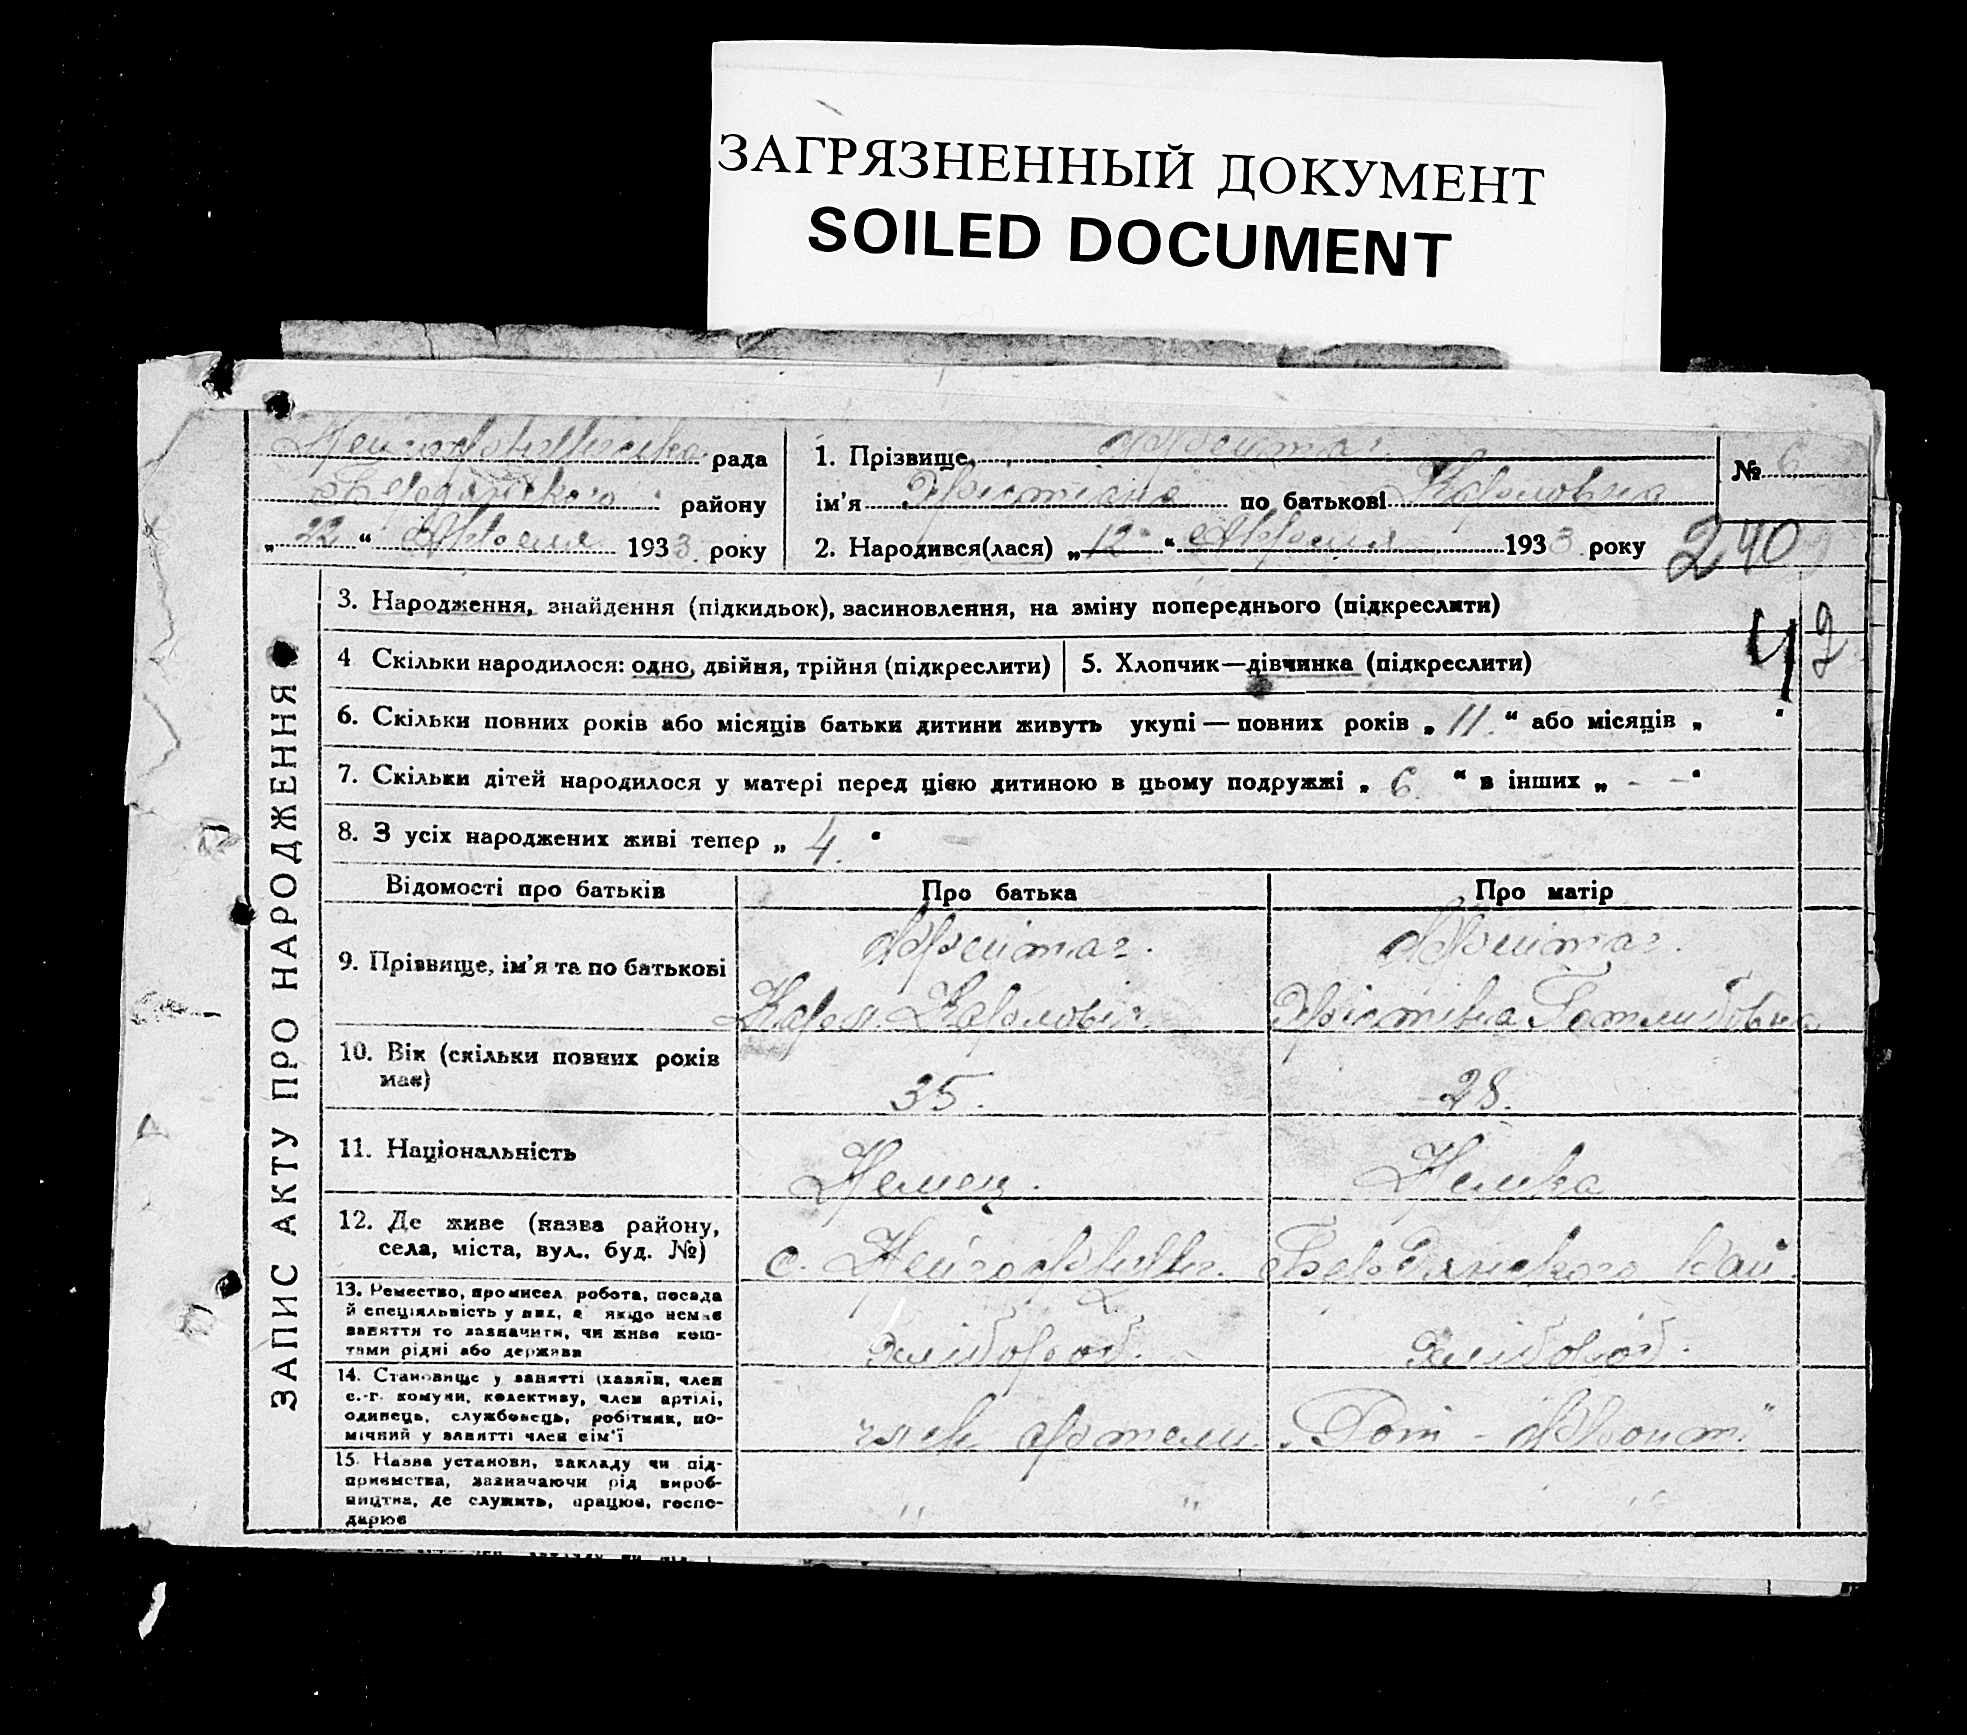 ЗАГРЯЗНЕННЫЙ ДОКУМЕНТ
SOILED DOCUMENT
рада
Бердянского району
„ 22 “ Апреля 1933 року
1. Прізвище Фрейтаг
ім’я Христіана по батькові Карловна
2. Народився(лася) „ 12 “ Апреля 1933 року
№ 6
240
42
ЗАПИС АКТУ ПРО НАРОДЖЕННЯ
3. Народження, знайдення (підкидьок), засиновлення, на зміну попереднього (підкреслити)
4 Скільки народилося: одно, двійня, трійня (підкреслити)
5. Хлопчик—дівчинка (підкреслити)
6. Скільки повних років або місяців батьки дитини живуть укупі — повних років „ 11. “ або місяців „
7. Скільки дітей народилося у матері перед цією дитиною в цьому подружжі „ 6 “ в інших „ - - “
8. З усіх народжених живі тепер „ 4. “
Відомості про батьків
Про батька
Про матір
9. Прізвище, ім’я та по батькові
Фрейтаг.
Карл Карлович
Фрейтаг.
Христіна Готлибовна
10. Вік (скільки повних років має)
35.
28.
11. Національність
Немец.
Немка
12. Де живе (назва району,
села, міста, вул., буд. №)
с. Бердянского Рай.
13. Ремество, промисел робота, посада
й спеціяльність у них, а якщо немає
заняття то зазначити, чи живе кош-
тами рідні або держави
Хлібороб.
Хлібороб.
14. Становище у занятті (хазяїн, член
с.-г. комуни, колективу, член артілі,
одинець, службовець, робітник, по-
мічний у занятті член сім’ї
член артели
„Рот - Фронт"
15. Назва установи, закладу чи під-
приємства, зазначаючи рід вироб-
ництва, де служить, працює, госпо-
дарює
" "
"